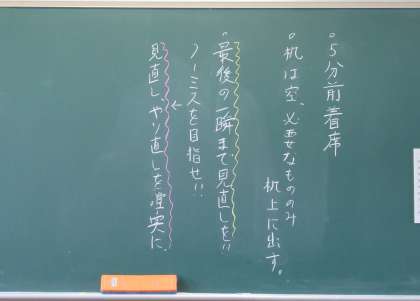 。5分前着席
。机は空、必要なもののみ
机上に出す。
。最後の一瞬まで見直しを!!
ノーミスを目指せ!!
見直し、やり直しを確実に